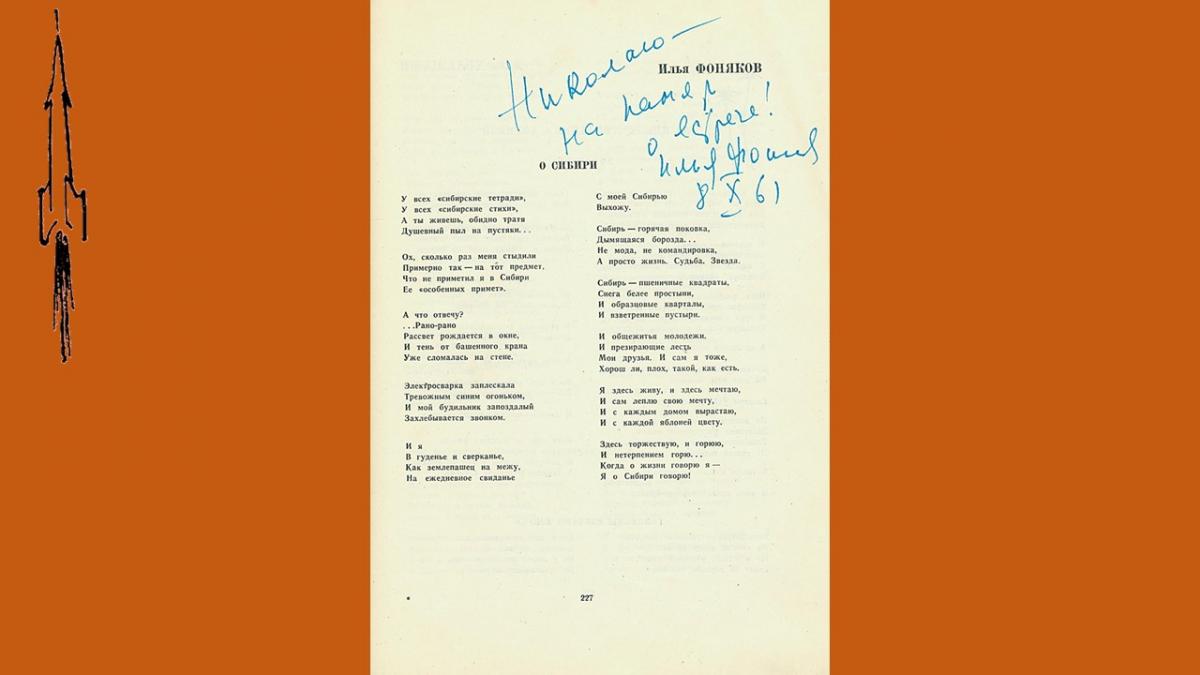 Николаю —
на память
о встрече!
Илья Фоняков
8 X 61
Илья ФОНЯКОВ
О СИБИРИ
У всех «сибирские тетради»,
У всех «сибирские стихи»,
А ты живешь, обидно тратя
Душевный пыл на пустяки...
Ох, сколько раз меня стыдили
Примерно так — на тот предмет,
Что не приметил я в Сибири
Ее «особенных примет».
А что отвечу?
...Рано-рано
Рассвет рождается в окне,
И тень от башенного крана
Уже сломалась на стене.
Электросварка заплескала
Тревожным синим огоньком,
И мой будильник запоздалый
Захлебывается звонком.
И я
В гуденье и сверканье,
Как землепашец на межу,
На ежедневное свиданье
С моей Сибирью
Выхожу.
Сибирь — горячая поковка,
Дымящаяся борозда...
Не мода, не командировка,
А просто жизнь. Судьба. Звезда.
Сибирь — пшеничные квадраты,
Снега белее простыни,
И образцовые кварталы,
И взветренные пустыри.
И общежитья молодежи,
И презирающие лесть
Мои друзья. И сам я тоже,
Хорош ли, плох, такой, как есть.
Я здесь живу, и здесь мечтаю,
И сам леплю свою мечту,
И с каждым домом вырастаю,
И с каждой яблоней цвету.
Здесь торжествую, и горюю,
И нетерпением горю...
Когда о жизни говорю я —
Я о Сибири говорю!
227